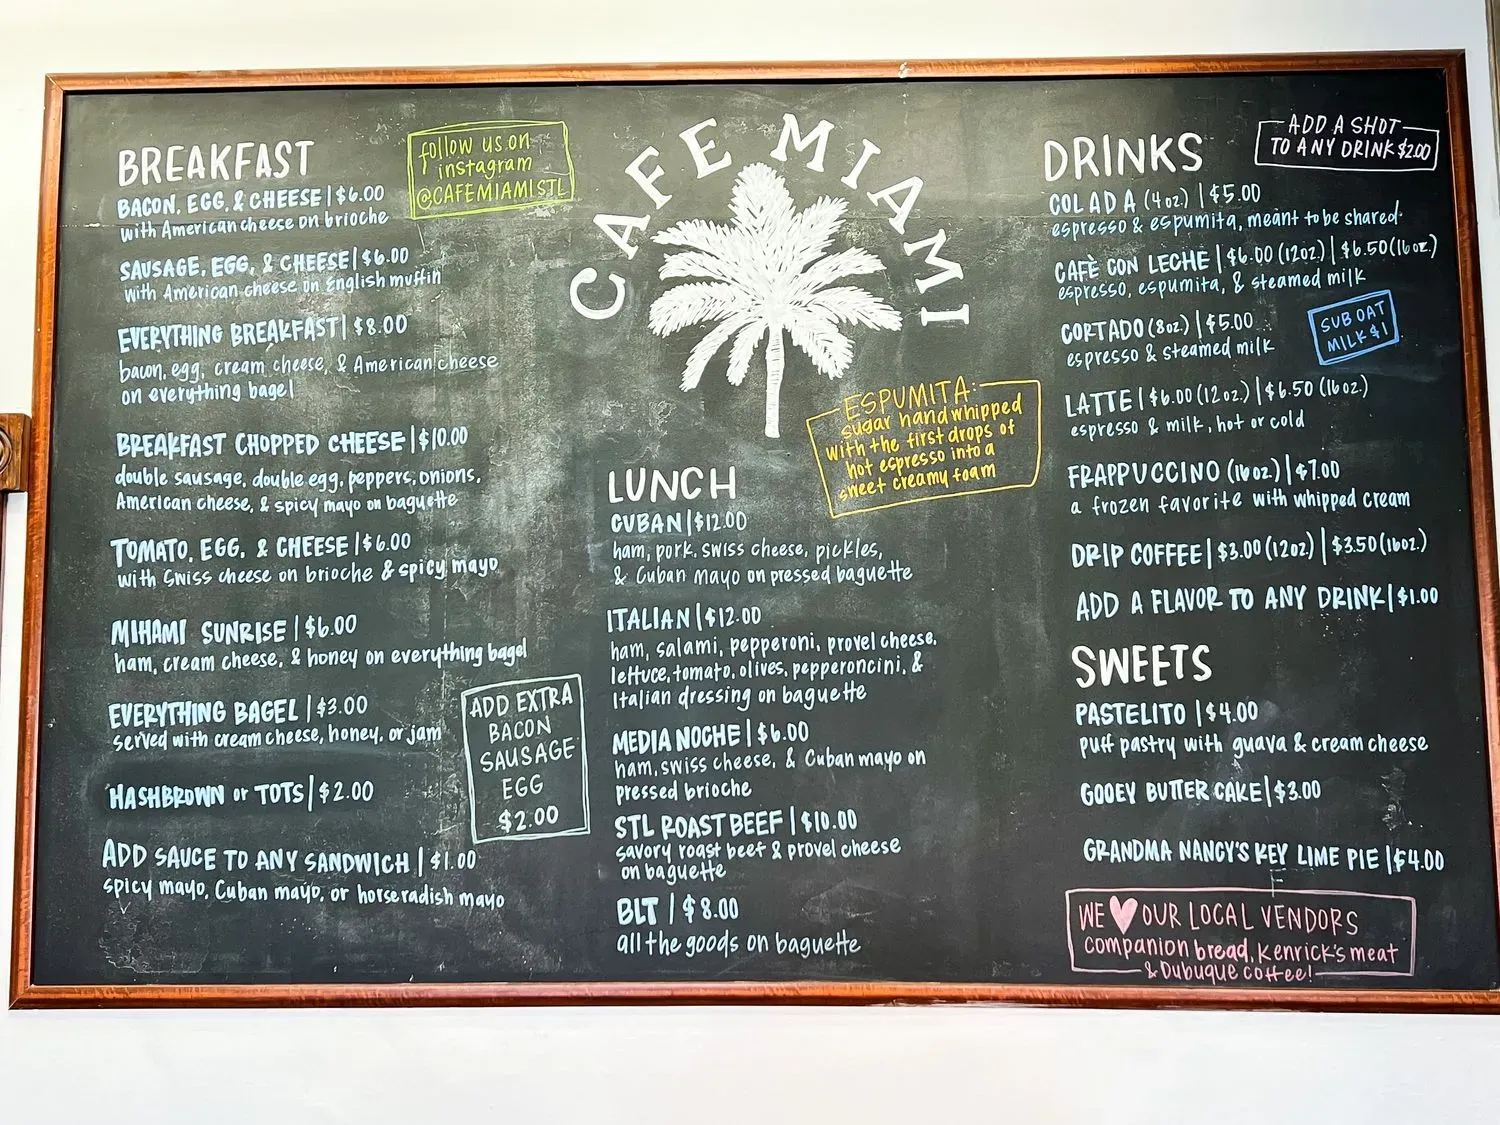 CAFE MIAMI
BREAKFAST
follow us on
instagram
@CAFEMIAMISTL
BACON, EGG, & CHEESE | $6.00
with American cheese on brioche
SAUSAGE, EGG, & CHEESE | $6.00
with American cheese on English muffin
EVERYTHING BREAKFAST | $8.00
bacon, egg, cream cheese, & American cheese
on everything bagel
BREAKFAST CHOPPED CHEESE | $10.00
double sausage, double egg, peppers, onions,
American cheese, & spicy mayo on baguette
TOMATO, EGG, & CHEESE | $6.00
with Swiss cheese on brioche & spicy mayo
MIHAMI SUNRISE | $6.00
ham, cream cheese, & honey on everything bagel
EVERYTHING BAGEL | $3.00
served with cream cheese, honey, or jam
HASHBROWN or TOTS | $2.00
ADD SAUCE TO ANY SANDWICH | $1.00
spicy mayo, Cuban mayo, or horseradish mayo
ADD EXTRA
BACON
SAUSAGE
EGG
$2.00
ESPUMITA:
sugar hand whipped
with the first drops of
hot espresso into a
sweet creamy foam
LUNCH
CUBAN | $12.00
ham, pork, swiss cheese, pickles,
& Cuban mayo on pressed baguette
ITALIAN | $12.00
ham, salami, pepperoni, provel cheese,
lettuce, tomato, olives, pepperoncini, &
Italian dressing on baguette
MEDIA NOCHE | $6.00
ham, swiss cheese, & Cuban mayo on
pressed brioche
STL ROAST BEEF | $10.00
savory roast beef & provel cheese
on baguette
BLT | $8.00
all the goods on baguette
DRINKS
ADD A SHOT
TO ANY DRINK $2.00
COLADA (4oz.) | $5.00
espresso & espumita, meant to be shared.
CAFÈ CON LECHE | $6.00 (12oz) | $6.50 (16oz.)
espresso, espumita, & steamed milk
CORTADO (8oz.) | $5.00
espresso & steamed milk
SUB OAT
MILK $1
LATTE | $6.00 (12oz.) | $6.50 (16oz.)
espresso & milk, hot or cold
FRAPPUCCINO (16oz.) | $7.00
a frozen favorite with whipped cream
DRIP COFFEE | $3.00 (12oz.) | $3.50 (16oz.)
ADD A FLAVOR TO ANY DRINK | $1.00
SWEETS
PASTELITO | $4.00
puff pastry with guava & cream cheese
GOOEY BUTTER CAKE | $3.00
GRANDMA NANCY'S KEY LIME PIE | $4.00
WE ♥ OUR LOCAL VENDORS
companion bread, Kenrick's meat
& Dubuque coffee!